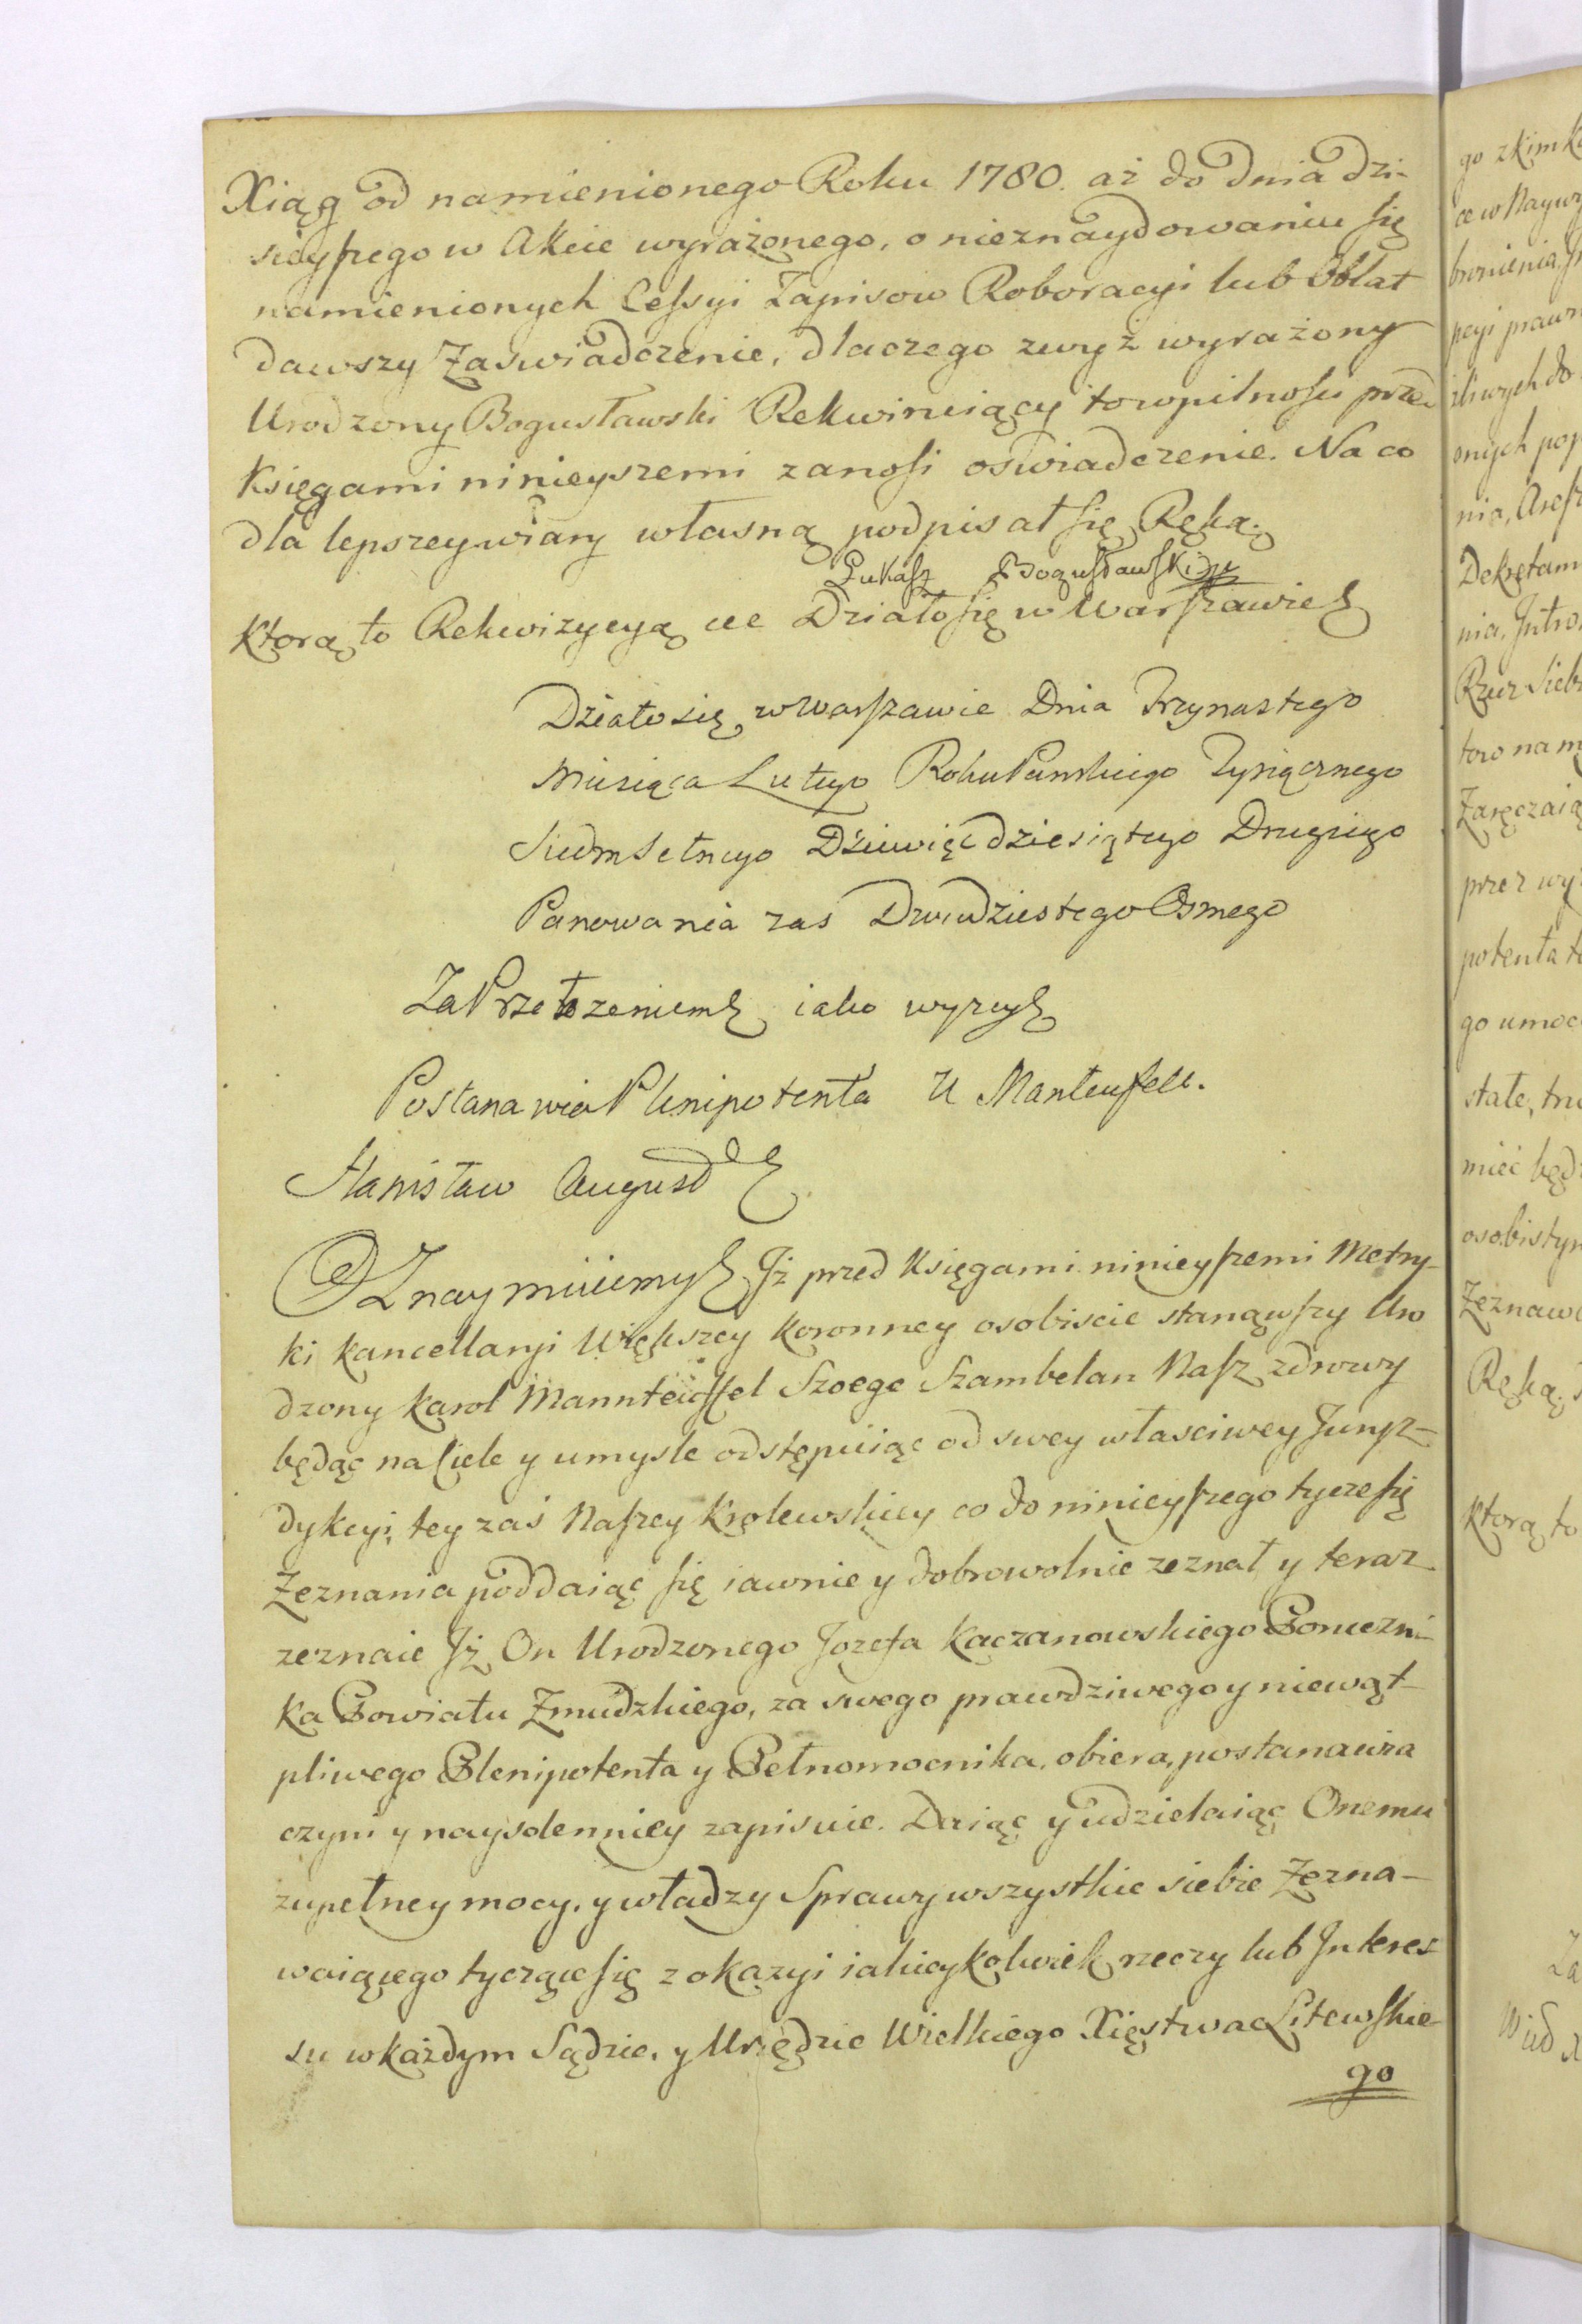 Xiąg od namienionego Roku 1780. aż do dnia dzi-
sieyszego w Akcie wyrażonego, o nieznaydowaniu się
namienionych Cessyi Zapisow Roboracyi lub Oblat
dawszy Zaswiadczenie, dlaczego zwyż wyrażony
Urodzony Bogusławski Rekwiruiący to wpilnosci przed
Księgami ninieyszemi zanosi oswiadczenie. Na co
dla lepszey wiary własną podpisał się Ręką.
Łukasz Bogusławski
Którą to Rekwizycyą etc Działo się w Warszawie
Działo się w Warszawie Dnia Trzynastego
Miesiąca Lutego Roku Panskiego Tysiącznego
Siedmsetnego Dziewięcdziesiątego Drugiego
Panowania zas Dwudziestego Osmego
Za Przełozeniem iako wyzey
Postanawia Plenipotenta U Manteufell.
Stanisław August
OZnaymuiemy Jż przed Księgami ninieyszemi Metry-
ki Kancellaryi Większey Koronney osobiscie stanąwszy Uro
dzony Karol Mannteuffel Szoege Szambelan Nasz zdrowy
będąc na Ciele y umysle odstępuiąc od swey własciwey Juryz-
dykcyi, tey zaś Naszey Krolewskiey co do ninieyszego tycze się
Zeznania poddaiąc się iawnie y dobrowolnie zeznał y teraz
zeznaie Jż On Urodzonego Jozefa Kaczanowskiego Porucznᴉ-
ka Powiatu Zmudzkiego, za swego prawdziwego y niewąt-
pliwego Plenipotenta y Pełnomocnika, obiera, postanawia
czyni y naysolenniey zapisuie. Daiąc y udzielaiąc Onemu
zupełney mocy, y władzy Sprawy wszystkie siebie Zezna-
waiącego tyczące się z okazyi iakieykolwiek rzeczy lub Jnteres
su w każdym Sądzie, y Urzędzie Wielkiego Xięstwa Litewskie
go
go zkim
ce w Nayw
pcyi prawn
onych pop
Dekretam
to w nam
Zaręczaią
przez wy
potenta
go umoc
stałe,
mieć będ
osobistym
Zeznawa
Ręką.
Którą to
Za